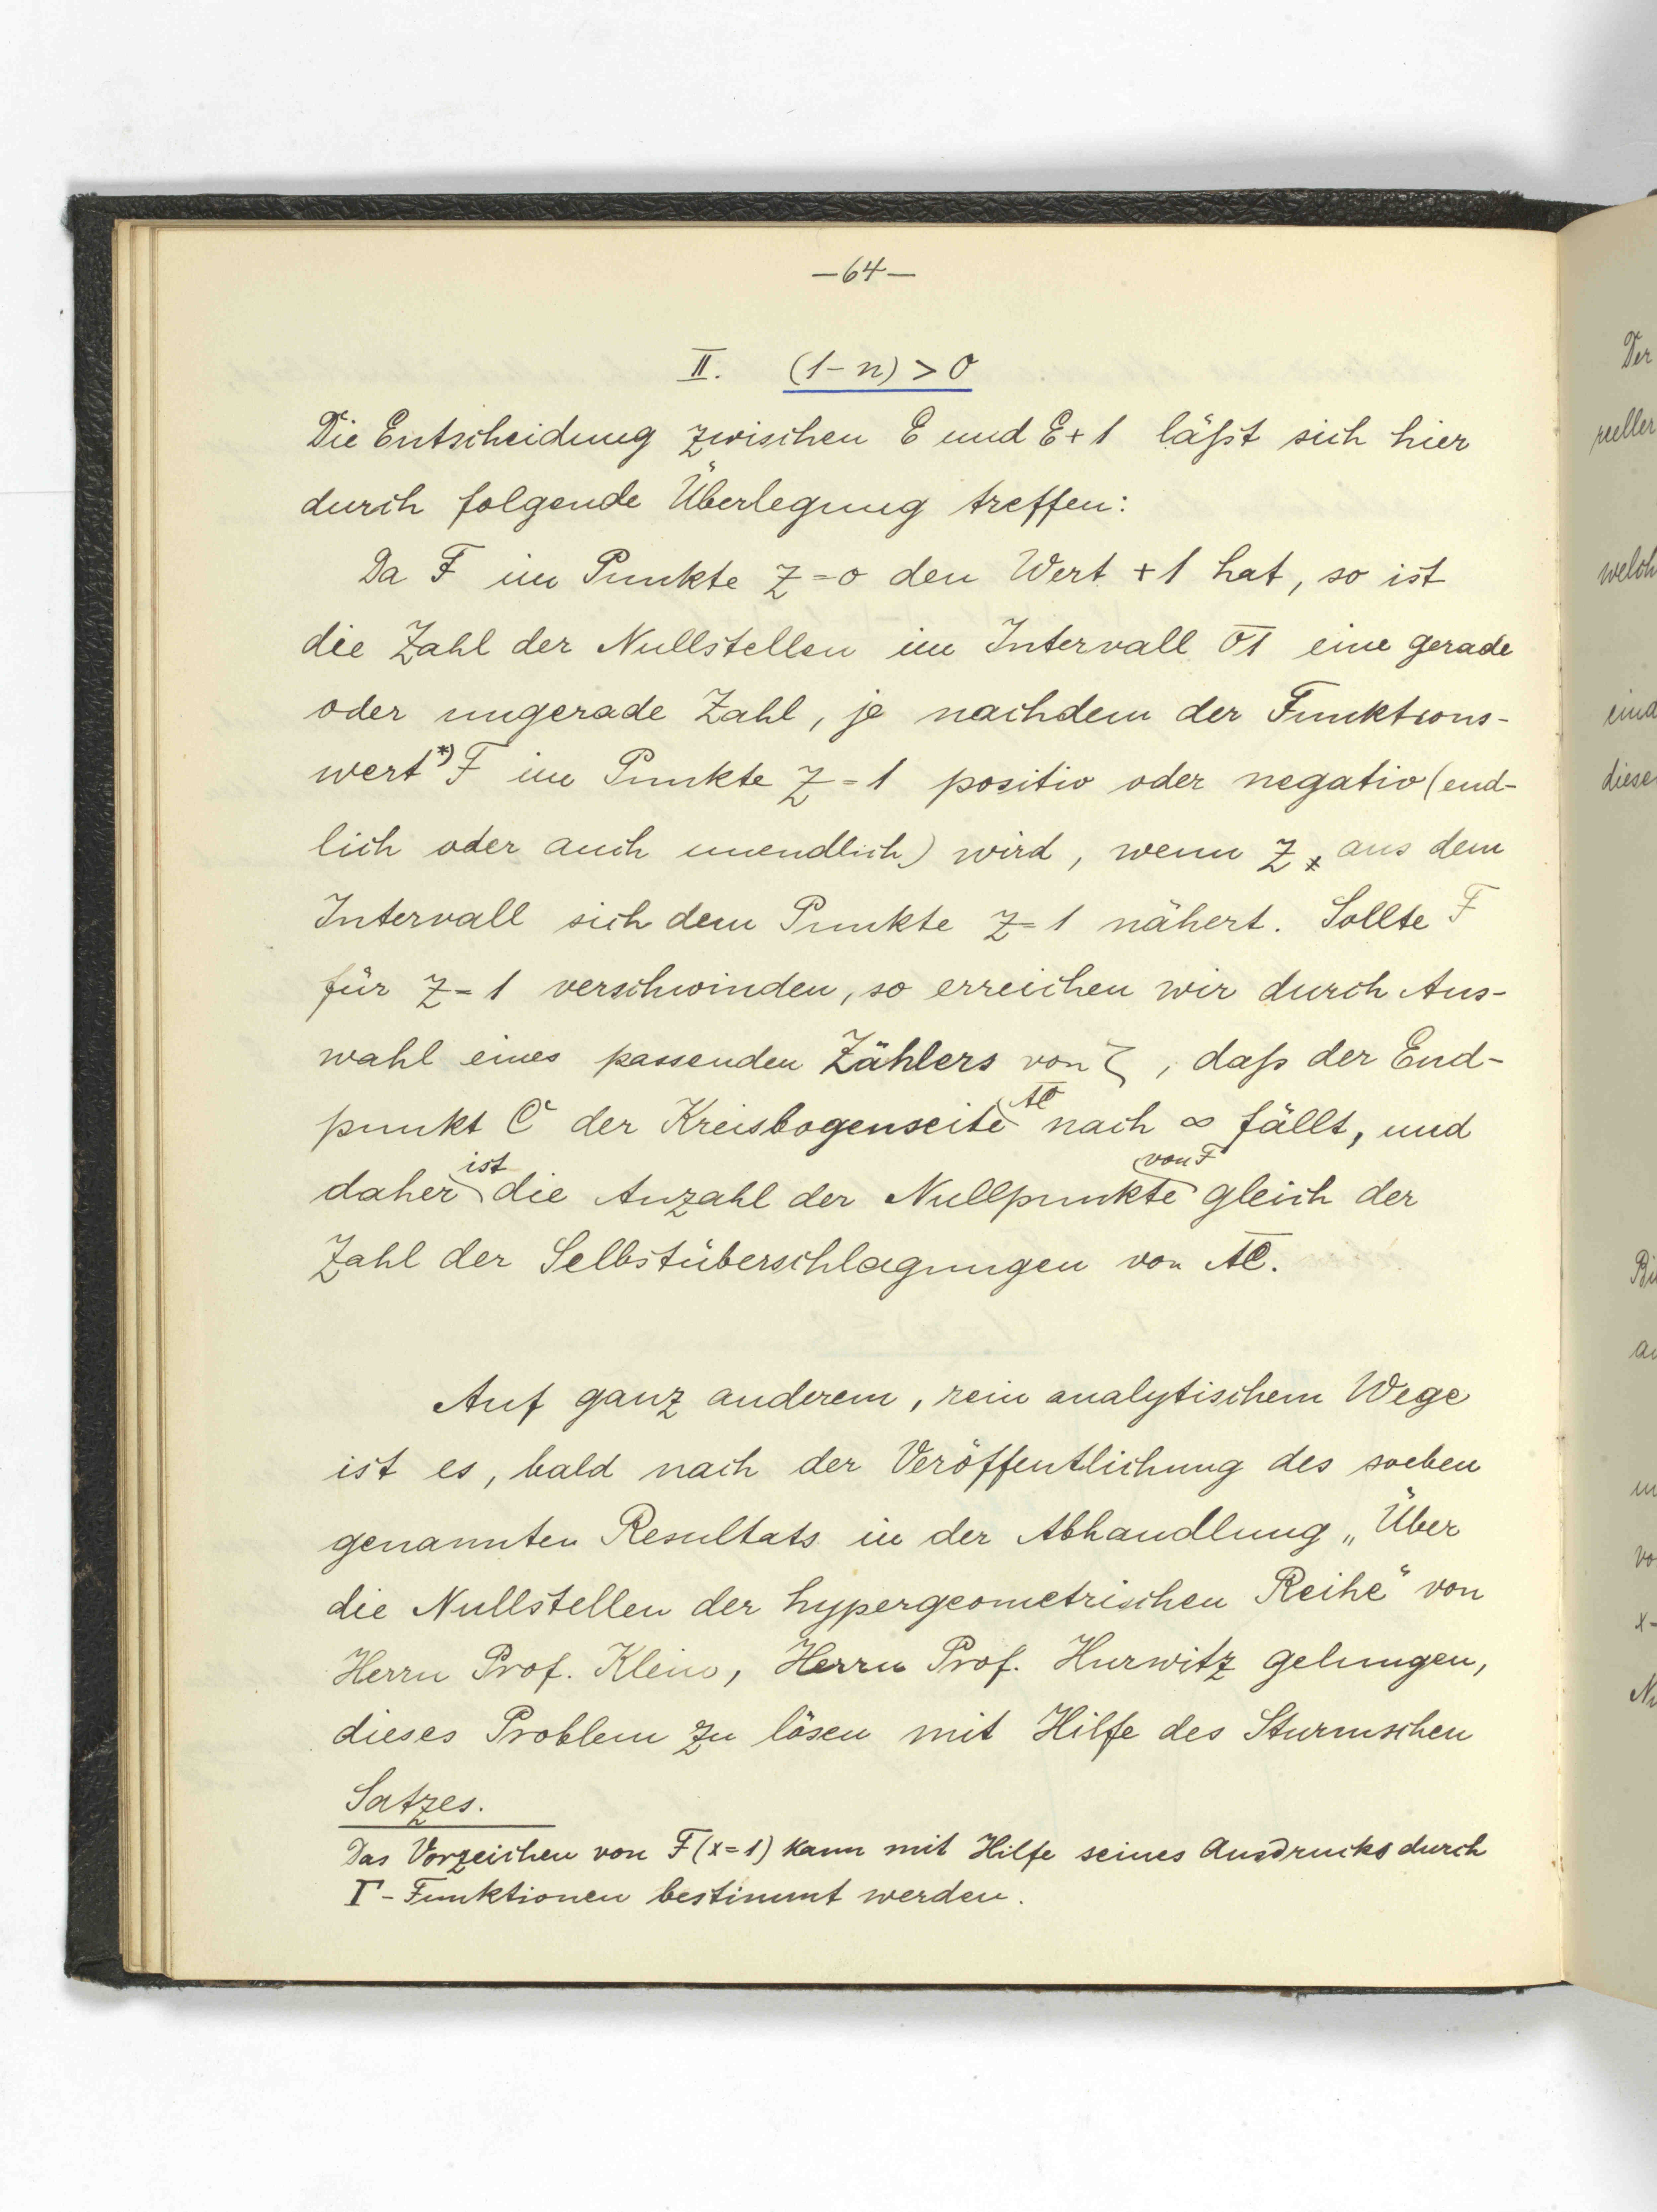 —64—
II. (1-n) > 0
Die Entscheidung zwischen E und E+1 läßt sich hier
durch folgende Überlegung treffen:
Da F im Punkte z=0 den Wert +1 hat, so ist
die Zahl der Nullstellen im Intervall 01 eine gerade
oder ungerade Zahl, je nachdem der Funktions-
wert*) F im Punkte z=1 positiv oder negativ (end-
lich oder auch unendlich) wird, wenn z aus dem
Intervall sich dem Punkte z=1 nähert. Sollte F
für z=1 verschwinden, so erreichen wir durch Aus-
wahl eines passenden Zählers von ζ, daß der End-
punkt C der Kreisbogenseite AC nach ∞ fällt, und
daher ist die Anzahl der Nullpunkte von F gleich der
Zahl der Selbstüberschlagungen von AC.
Auf ganz anderem, rein analytischem Wege
ist es, bald nach der Veröffentlichung des soeben
genannten Resultats in der Abhandlung „Über
die Nullstellen der hypergeometrischen Reihe“ von
Herrn Prof. Klein, Herrn Prof. Hurwitz gelungen,
dieses Problem zu lösen mit Hilfe des Sturmschen
Satzes.
Das Vorzeichen von F(x=1) kann mit Hilfe seines Ausdrucks durch
Γ-Funktionen bestimmt werden.
Der
reeller
welch
eind
diese